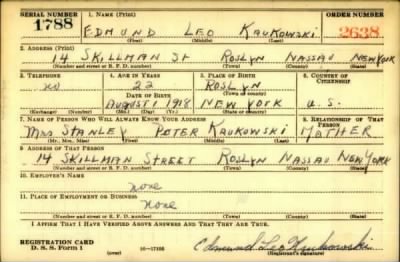 SERIAL NUMBER 1. NAME (Print) ORDER NUMBER
1788 EDMUND LEO KRUKOWSKI 2638
(First) (Middle) (Last)
2. ADDRESS (Print)
14 SKILLMAN ST ROSLYN NASSAU NEW YORK
(Number and street or R. F. D. number) (Town) (County) (State)
3. TELEPHONE 4. AGE IN YEARS 5. PLACE OF BIRTH 6. COUNTRY OF CITIZENSHIP
no 22 ROSLYN
DATE OF BIRTH (Town or county)
AUGUST 1 1918 NEW YORK U.S.
(Exchange) (Number) (Mo.) (Day) (Yr.) (State or country)
7. NAME OF PERSON WHO WILL ALWAYS KNOW YOUR ADDRESS RELATIONSHIP OF THAT PERSON
MRS STANLEY PETER KRUKOWSKI MOTHER
(Mr., Mrs., Miss) (First) (Middle) (Last)
9. ADDRESS OF THAT PERSON
14 SKILLMAN STREET ROSLYN NASSAU NEW YORK
(Number and street or R. F. D. number) (Town) (County) (State)
10. EMPLOYER'S NAME
none
11. PLACE OF EMPLOYMENT OR BUSINESS
none
(Number and street or R. F. D. number) (Town) (County) (State)
I AFFIRM THAT I HAVE VERIFIED ABOVE ANSWERS AND THAT THEY ARE TRUE.
REGISTRATION CARD
D. S. S. Form 1 16—17105 Edmund Leo Krukowski
(Registrant's signature)